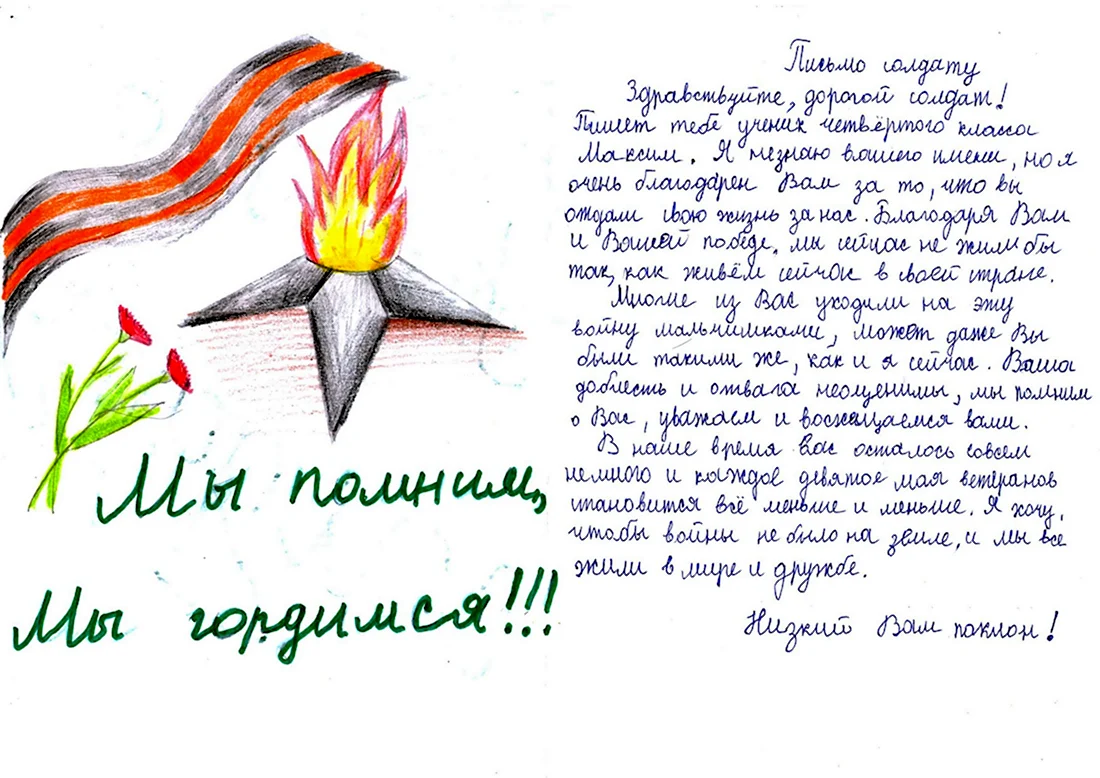 Мы помним,
Мы гордимся!!!
Письмо солдату
Здравствуйте, дорогой солдат!
Пишет тебе ученик четвёртого класса
Максим. Я незнаю вашего имени, но я
очень благодарен Вам за то, что вы
отдали свою жизнь за нас. Благодаря Вам
и Вашей победе, мы сейчас не жили бы
так, как живём сейчас в своей стране.
Многие из Вас уходили на эту
войну мальчишками, может даже Вы
были такими же, как и я сейчас. Ваша
доблесть и отвага неоценимы, мы помним
о Вас, уважаем и восхищаемся вами.
В наше время вас осталось совсем
немного и каждое девятое мая ветеранов
становится всё меньше и меньше. Я хочу,
чтобы войны не было на земле, и мы все
жили в мире и дружбе.
Низкий Вам поклон!